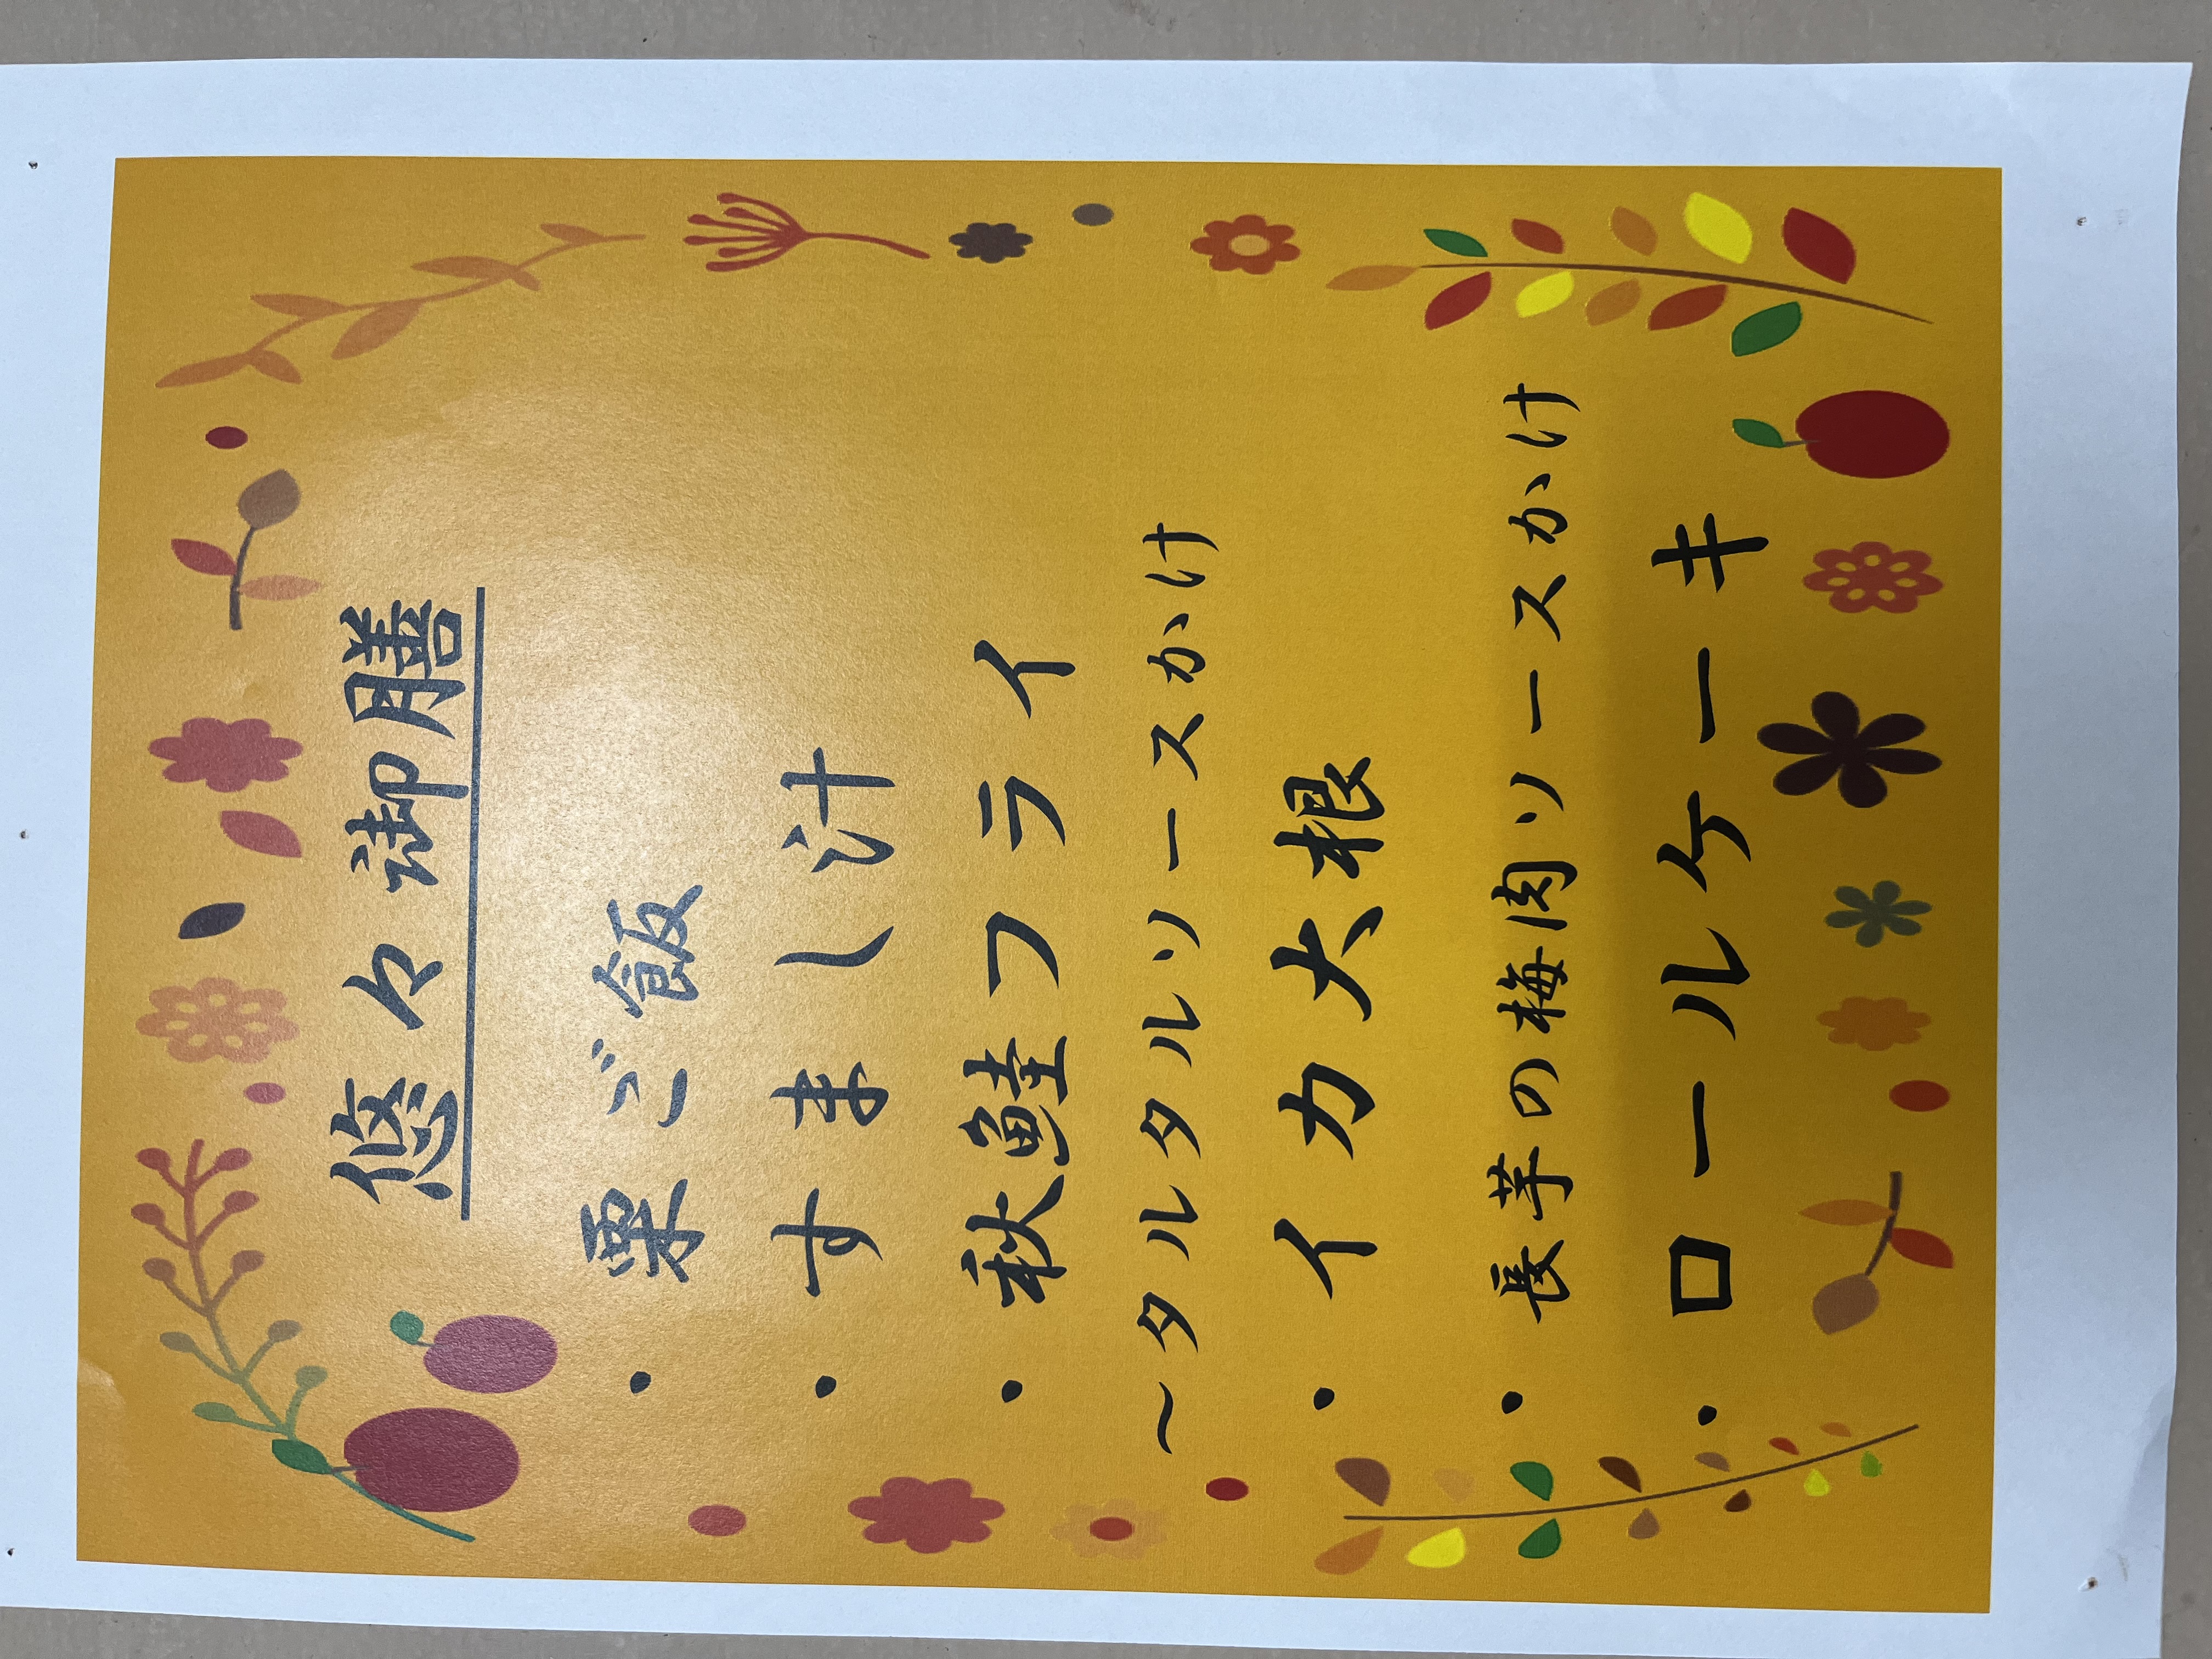 悠々御膳
・栗ご飯
・すまし汁
・秋鮭フライ
～タルタルソースかけ
・イカ大根
・長芋の梅肉ソースかけ
・ロールケーキ